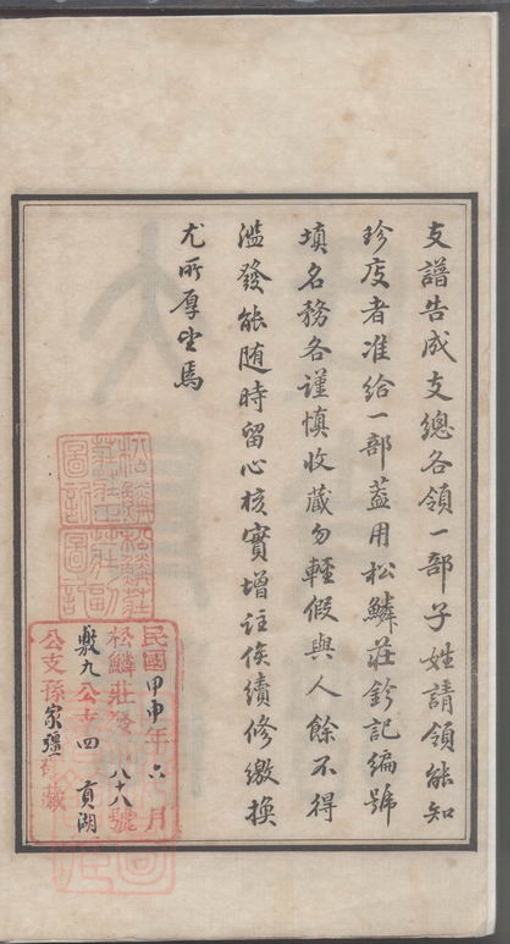 支譜告成支總各領一部子姓請領能知
珍庋者准給一部蓋用松鱗莊鈐記編號
填名務各謹慎收藏勿輕假與人餘不得
濫發能隨時留心核實增註俟續修繳換
尤所厚望焉
民國甲申年六月
松鱗莊 八十八號
敷九公支四 貢湖
公支孫家彊 藏